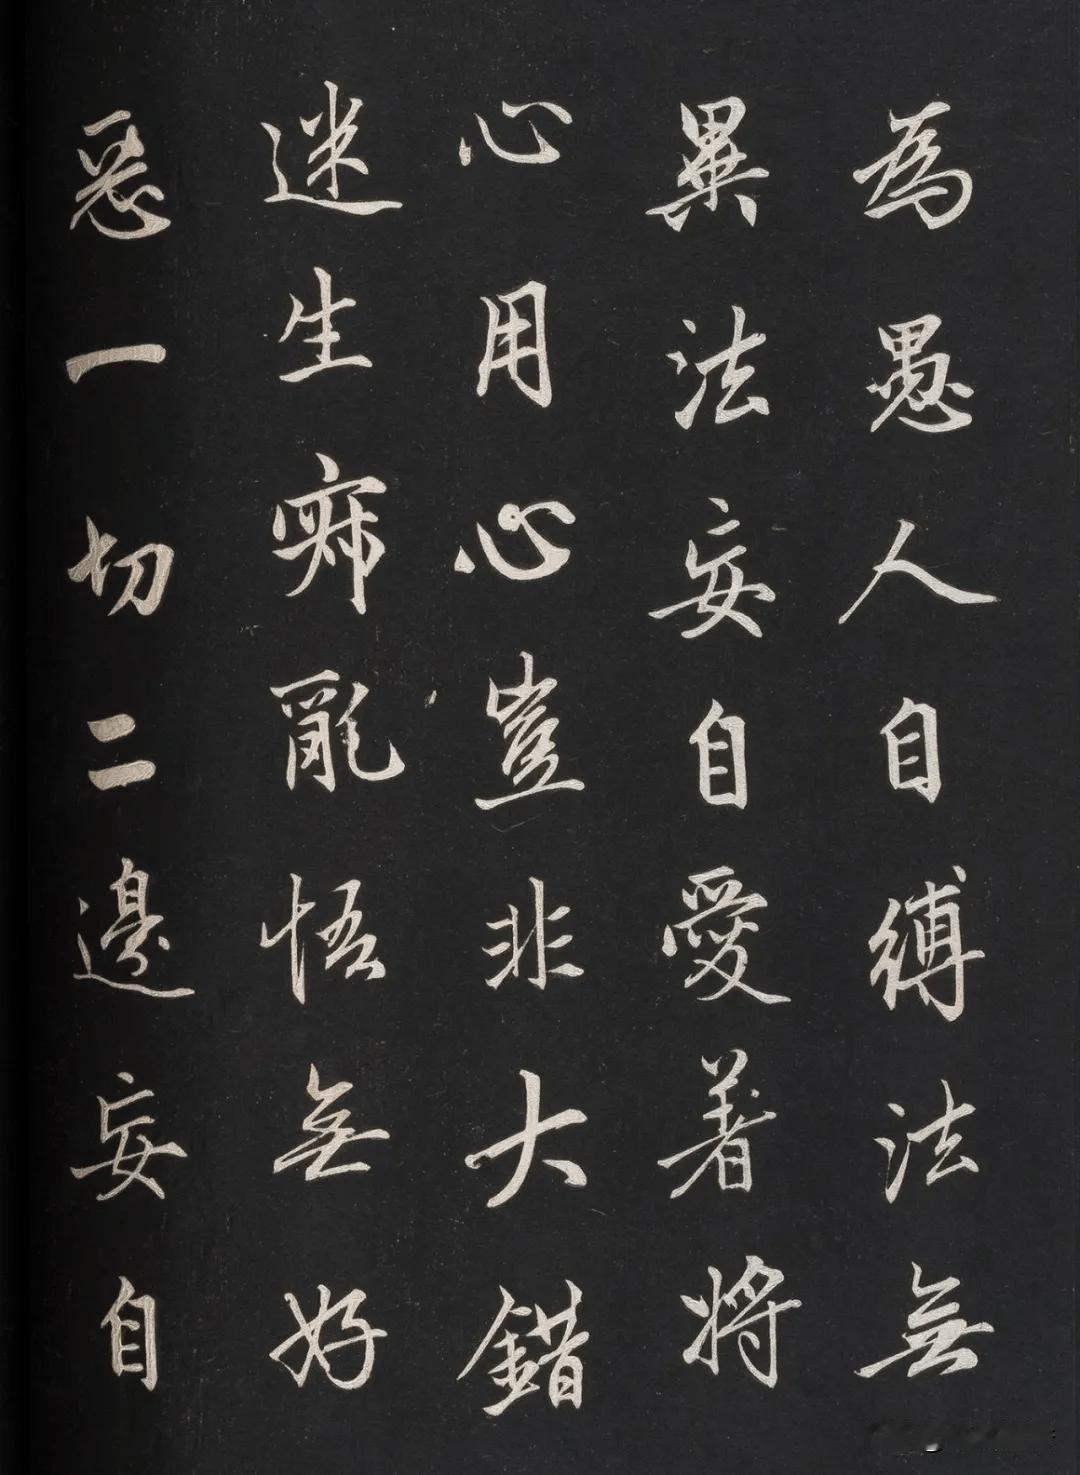 為愚人自縛法無
異法妄自愛著將
心用心豈非大錯
迷生寐亂悟無好
惡一切二邊妄自